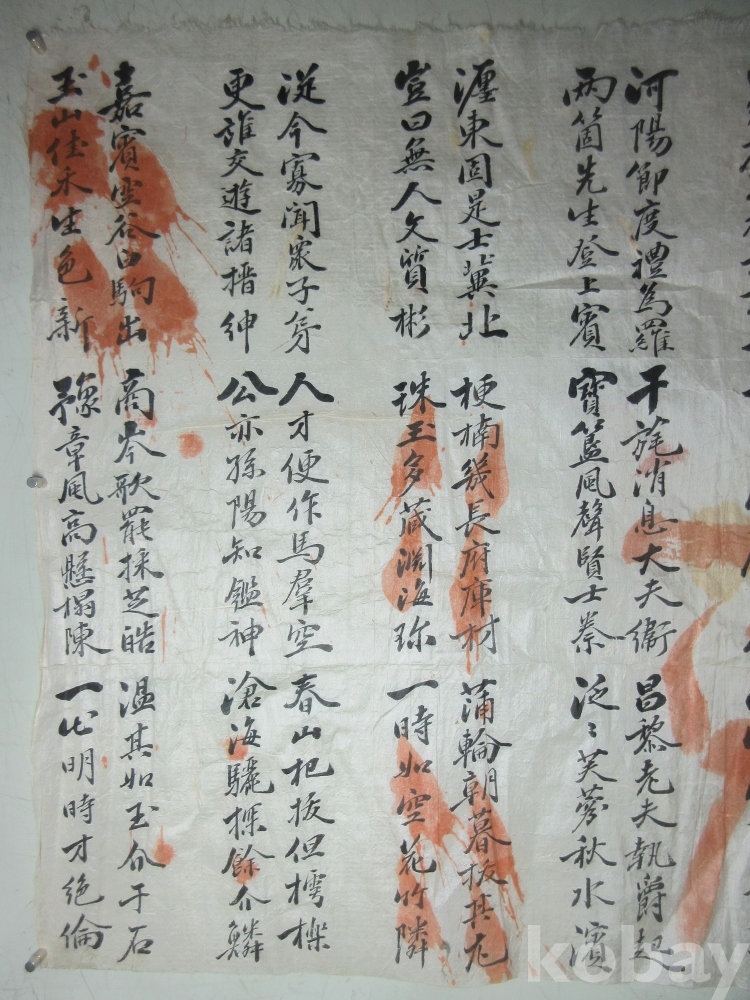 河陽節度禮爲羅 干旄消息大夫衛 昌黎老夫執爵起
兩箇先生登上賓 寶籃風聲賢士蔡 泛〻芙秋水濱
瀍東固是士冀北 梗楠幾長府庫材 蒲輪朝暮拔其尤
豈曰無人文質彬 珠玉多藏淵海珎 一時如空花竹隣
從今寡聞衆子弟 人才便作馬羣空 春山把拔但樗櫟
更誰交遊諸搢紳 公亦孫陽知鑑神 滄海驪探餘介鱗
嘉賓空谷白駒出 商岑歌罷採芝皓 温其如玉介于石
玉山佳禾生色新 豫章風高懸榻陳 一代明時才絶倫
kebay